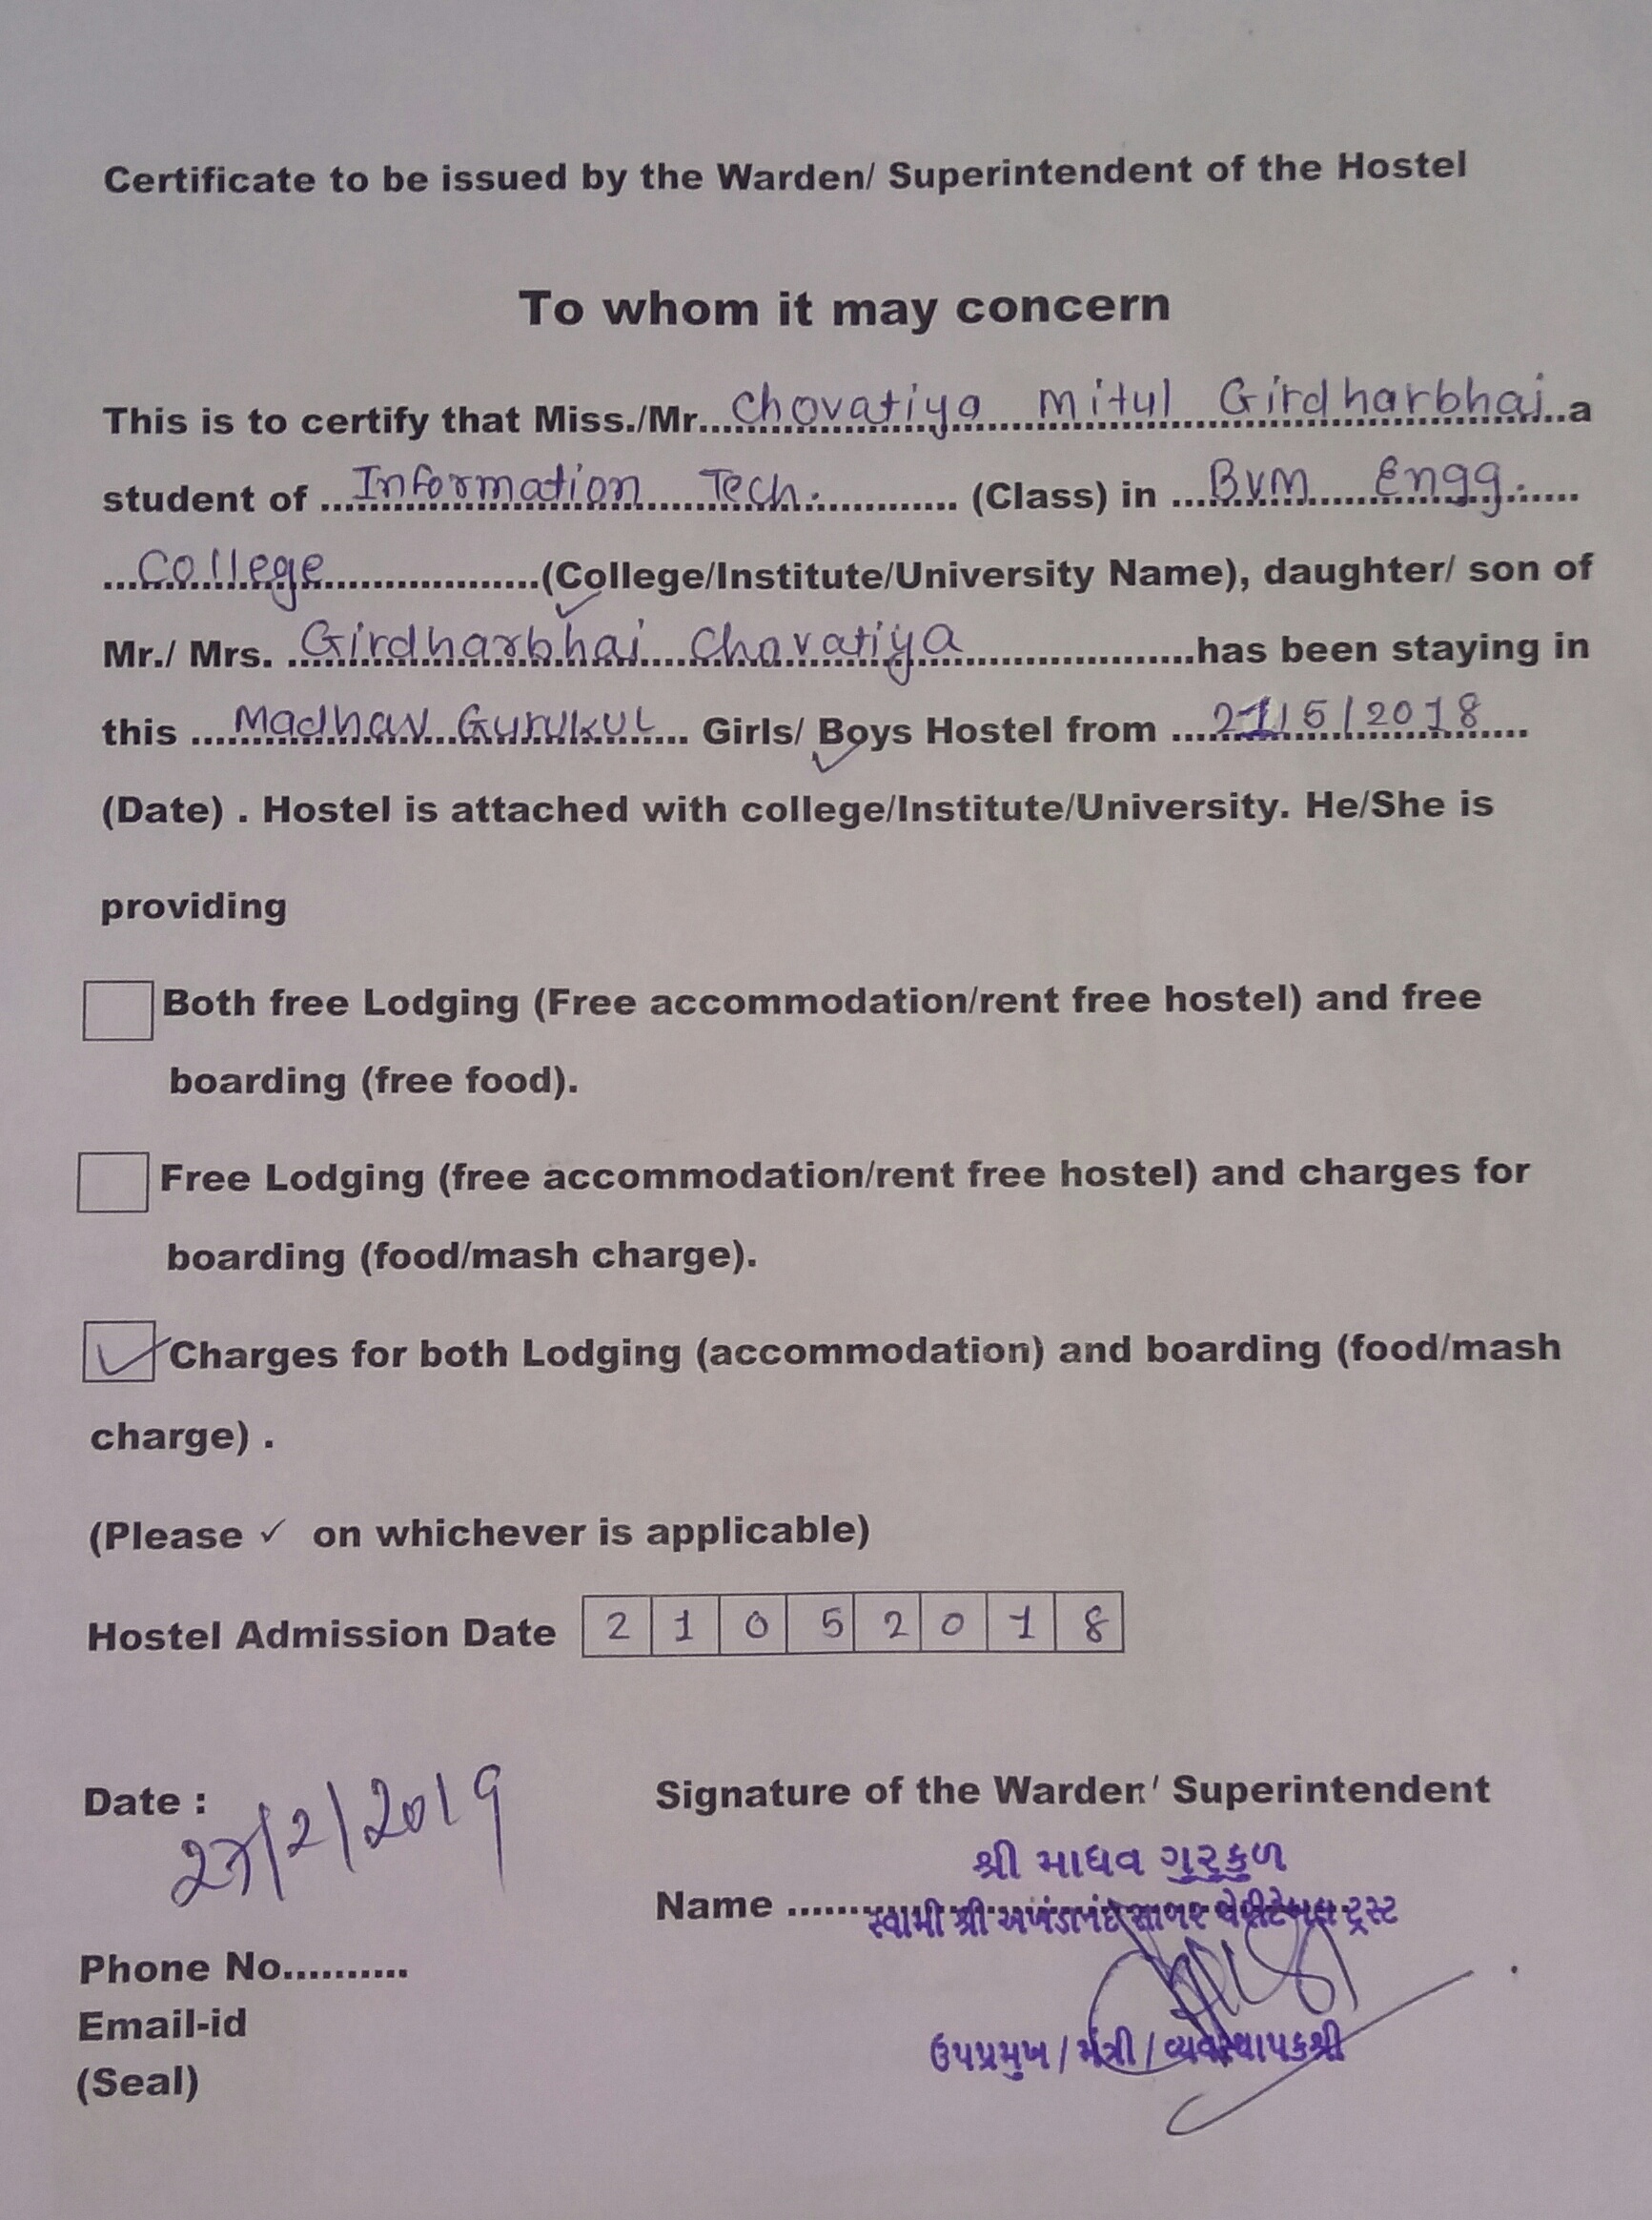 Certificate to be issued by the Warden/ Superintendent of the Hostel
To whom it may concern
This is to certify that Miss./Mr....Chovatiya Mitul Girdharbhai...a
student of ...Information Tech............. (Class) in ...BVM Engg.......
...College....................(College/Institute/University Name), daughter/ son of
Mr./ Mrs. ...Girdharbhai Chovatiya.....................has been staying in
this ...Madhav Gurukul... Girls/ Boys Hostel from ...21/5/2018......
(Date) . Hostel is attached with college/Institute/University. He/She is
providing
Both free Lodging (Free accommodation/rent free hostel) and free
boarding (free food).
Free Lodging (free accommodation/rent free hostel) and charges for
boarding (food/mash charge).
✓ Charges for both Lodging (accommodation) and boarding (food/mash
charge) .
(Please ✓ on whichever is applicable)
Hostel Admission Date 2 1 0 5 2 0 1 8
Date : 27/2/2019
Signature of the Warden/ Superintendent
શ્રી માધવ ગુરુકુળ
Name ........
સ્વામી શ્રી અખંડાનંદ સાગર ચેરીટેબલ ટ્રસ્ટ
Phone No..........
Email-id
ઉપપ્રમુખ / મંત્રી / વ્યવસ્થાપકશ્રી
(Seal)